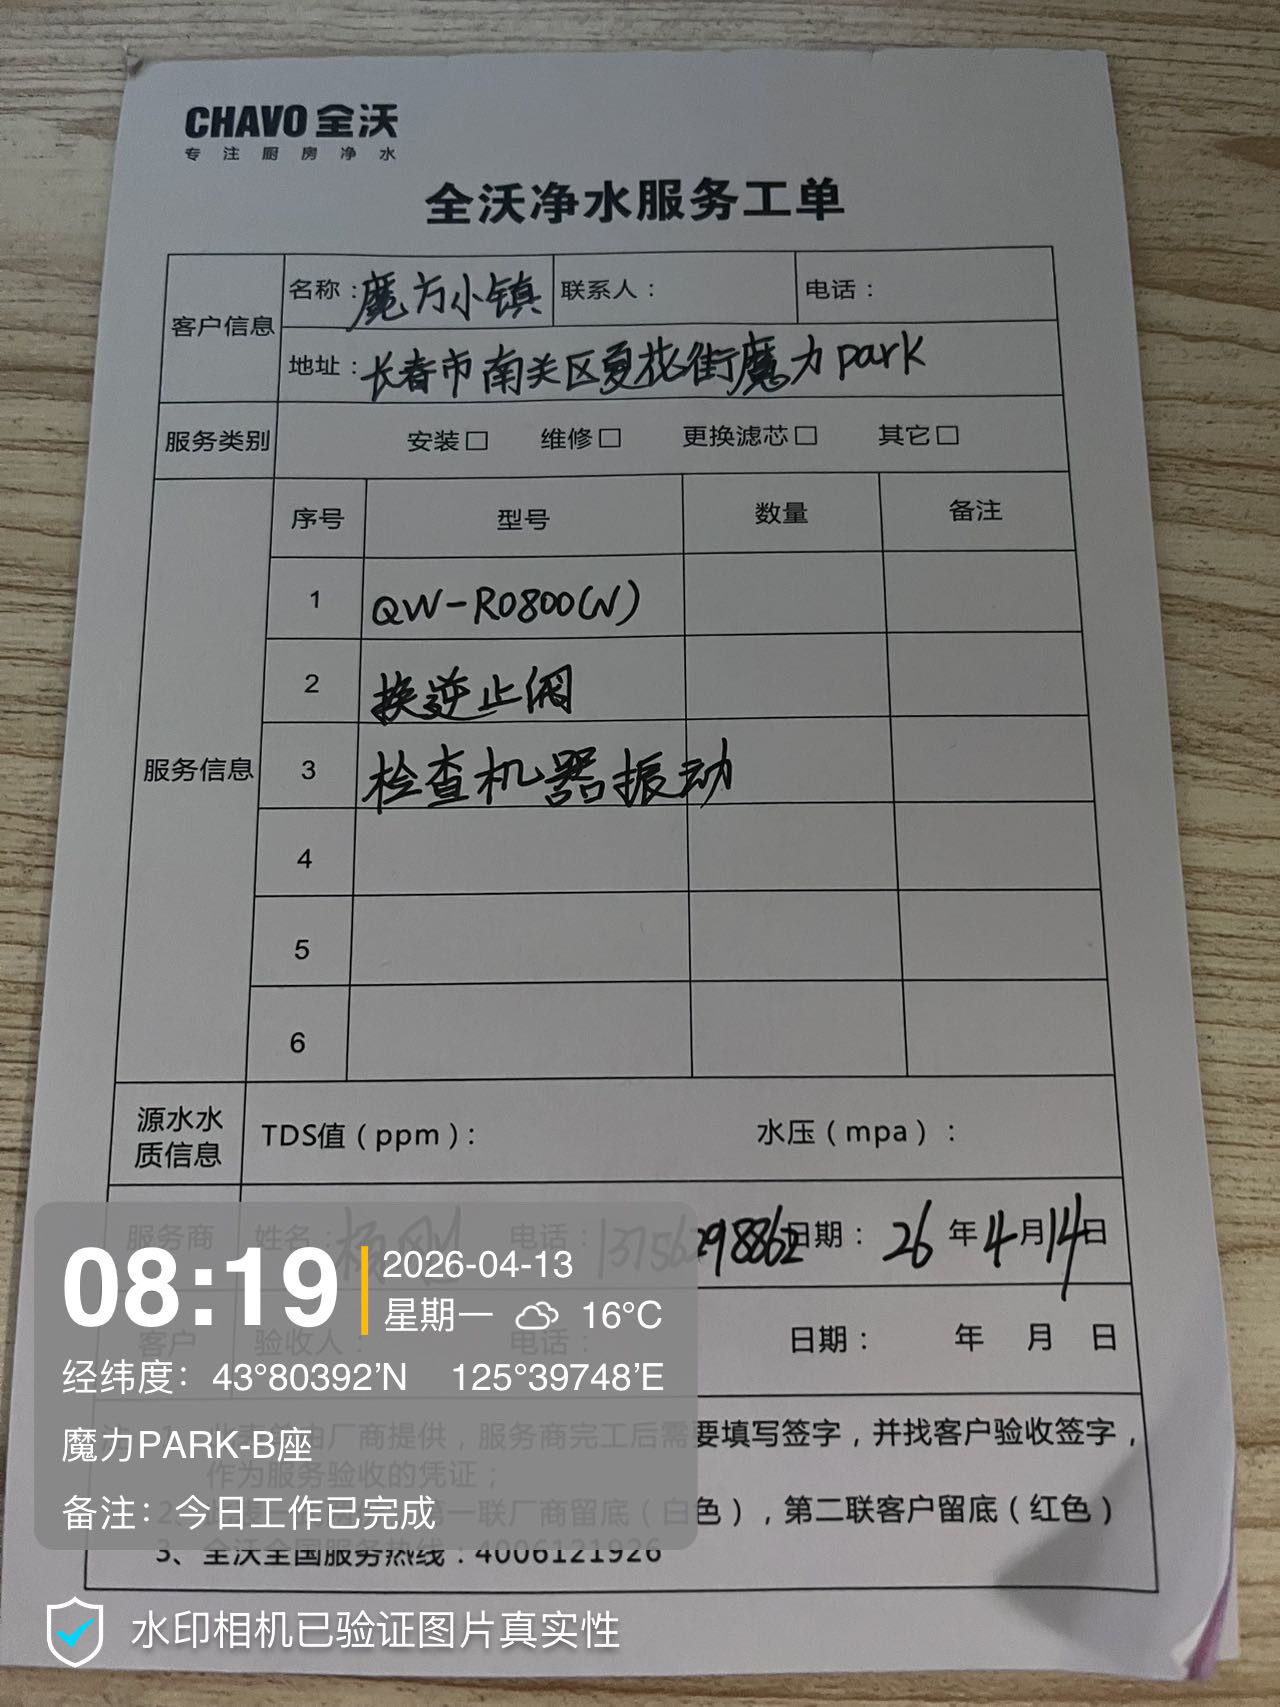 CHAVO 全沃
专注厨房净水
全沃净水服务工单
客户信息
名称：魔方小镇 联系人： 电话：
地址：长春市南关区夏花街魔力park
服务类别 安装□ 维修□ 更换滤芯□ 其它□
服务信息
序号 型号 数量 备注
1 QW-RO800(N)
2 换逆止阀
3 检查机器振动
4
5
6
源水水质信息 TDS值（ppm）： 水压（mpa）：
服务商 姓名：杨刚 电话：13756298862 日期：26年4月14日
客户 验收人： 电话： 日期： 年 月 日
由厂商提供，服务商完工后需要填写签字，并找客户验收签字，
作为服务验收的凭证；
2、 第一联厂商留底（白色），第二联客户留底（红色）
3、全沃全国服务热线：4006121926
08:19
2026-04-13
星期一 16°C
经纬度：43°80392'N 125°39748'E
魔力PARK-B座
备注：今日工作已完成
水印相机已验证图片真实性